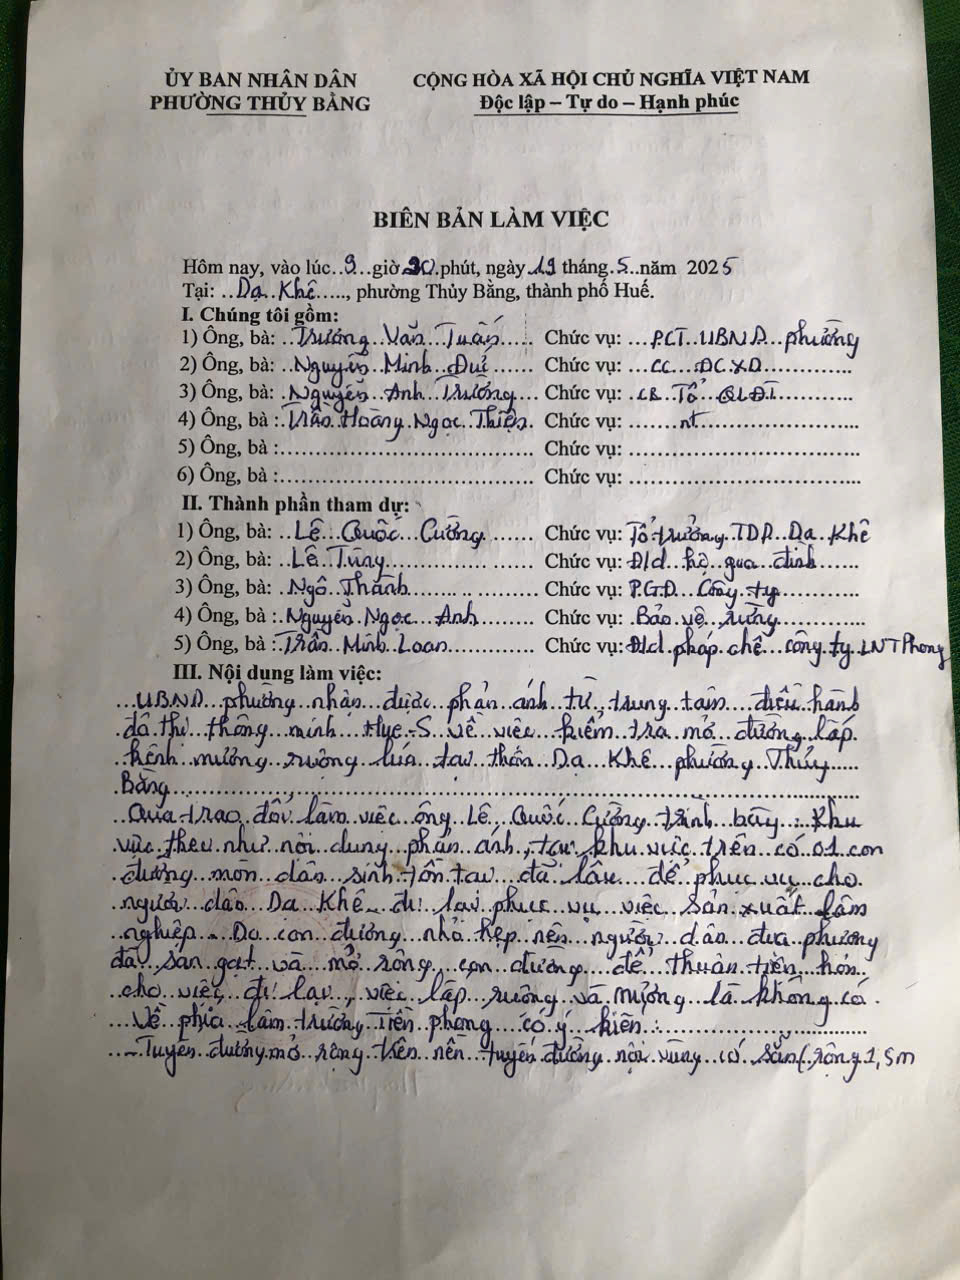 ỦY BAN NHÂN DÂN
PHƯỜNG THỦY BẰNG
CỘNG HÒA XÃ HỘI CHỦ NGHĨA VIỆT NAM
Độc lập – Tự do – Hạnh phúc
BIÊN BẢN LÀM VIỆC
Hôm nay, vào lúc 9 giờ 20 phút, ngày 19 tháng 5 năm 2025
Tại: Dạ Khê, phường Thủy Bằng, thành phố Huế.
I. Chúng tôi gồm:
1) Ông, bà: Trương Văn Tuấn Chức vụ: PCT UBND phường
2) Ông, bà: Nguyễn Minh Đuỉ Chức vụ: CC ĐCXD
3) Ông, bà: Nguyễn Anh Trường Chức vụ: CB Tổ QLĐT
4) Ông, bà : Trần Hoàng Ngọc Thiện Chức vụ: nt
5) Ông, bà : Chức vụ:
6) Ông, bà : Chức vụ:
II. Thành phần tham dự:
1) Ông, bà: Lê Quốc Cường Chức vụ: Tổ trưởng TDP Dạ Khê
2) Ông, bà: Lê Tùng Chức vụ: Đ/d hộ gia đình
3) Ông, bà: Ngô Thành Chức vụ: P.GĐ Công ty
4) Ông, bà : Nguyễn Ngọc Anh Chức vụ: Bảo vệ rừng
5) Ông, bà : Trần Minh Loan Chức vụ: Đ/d pháp chế công ty LNTPhong
III. Nội dung làm việc:
UBND phường nhận được phản ánh từ trung tâm điều hành
đô thị thông minh Hue-S về việc kiểm tra mở đường, lấp
kênh mương ruộng lúa tại thôn Dạ Khê phường Thủy
Bằng
Qua trao đổi làm việc ông Lê Quốc Cường trình bày : Khu
vực theo như nội dung phản ánh, tại khu vực trên có 01 con
đường mòn dân sinh tồn tại đã lâu để phục vụ cho
người dân Dạ Khê đi lại phục vụ việc sản xuất lâm
nghiệp. Do con đường nhỏ hẹp nên người dân địa phương
đã san gạt và mở rộng con đường để thuận tiện hơn
cho việc đi lại, việc lấp ruộng và mương là không có.
Về phía lâm trường Tiền phong có ý kiến :
- Tuyến đường mở rộng trên nền tuyến đường nội vùng có sẵn (rộng 1,5m